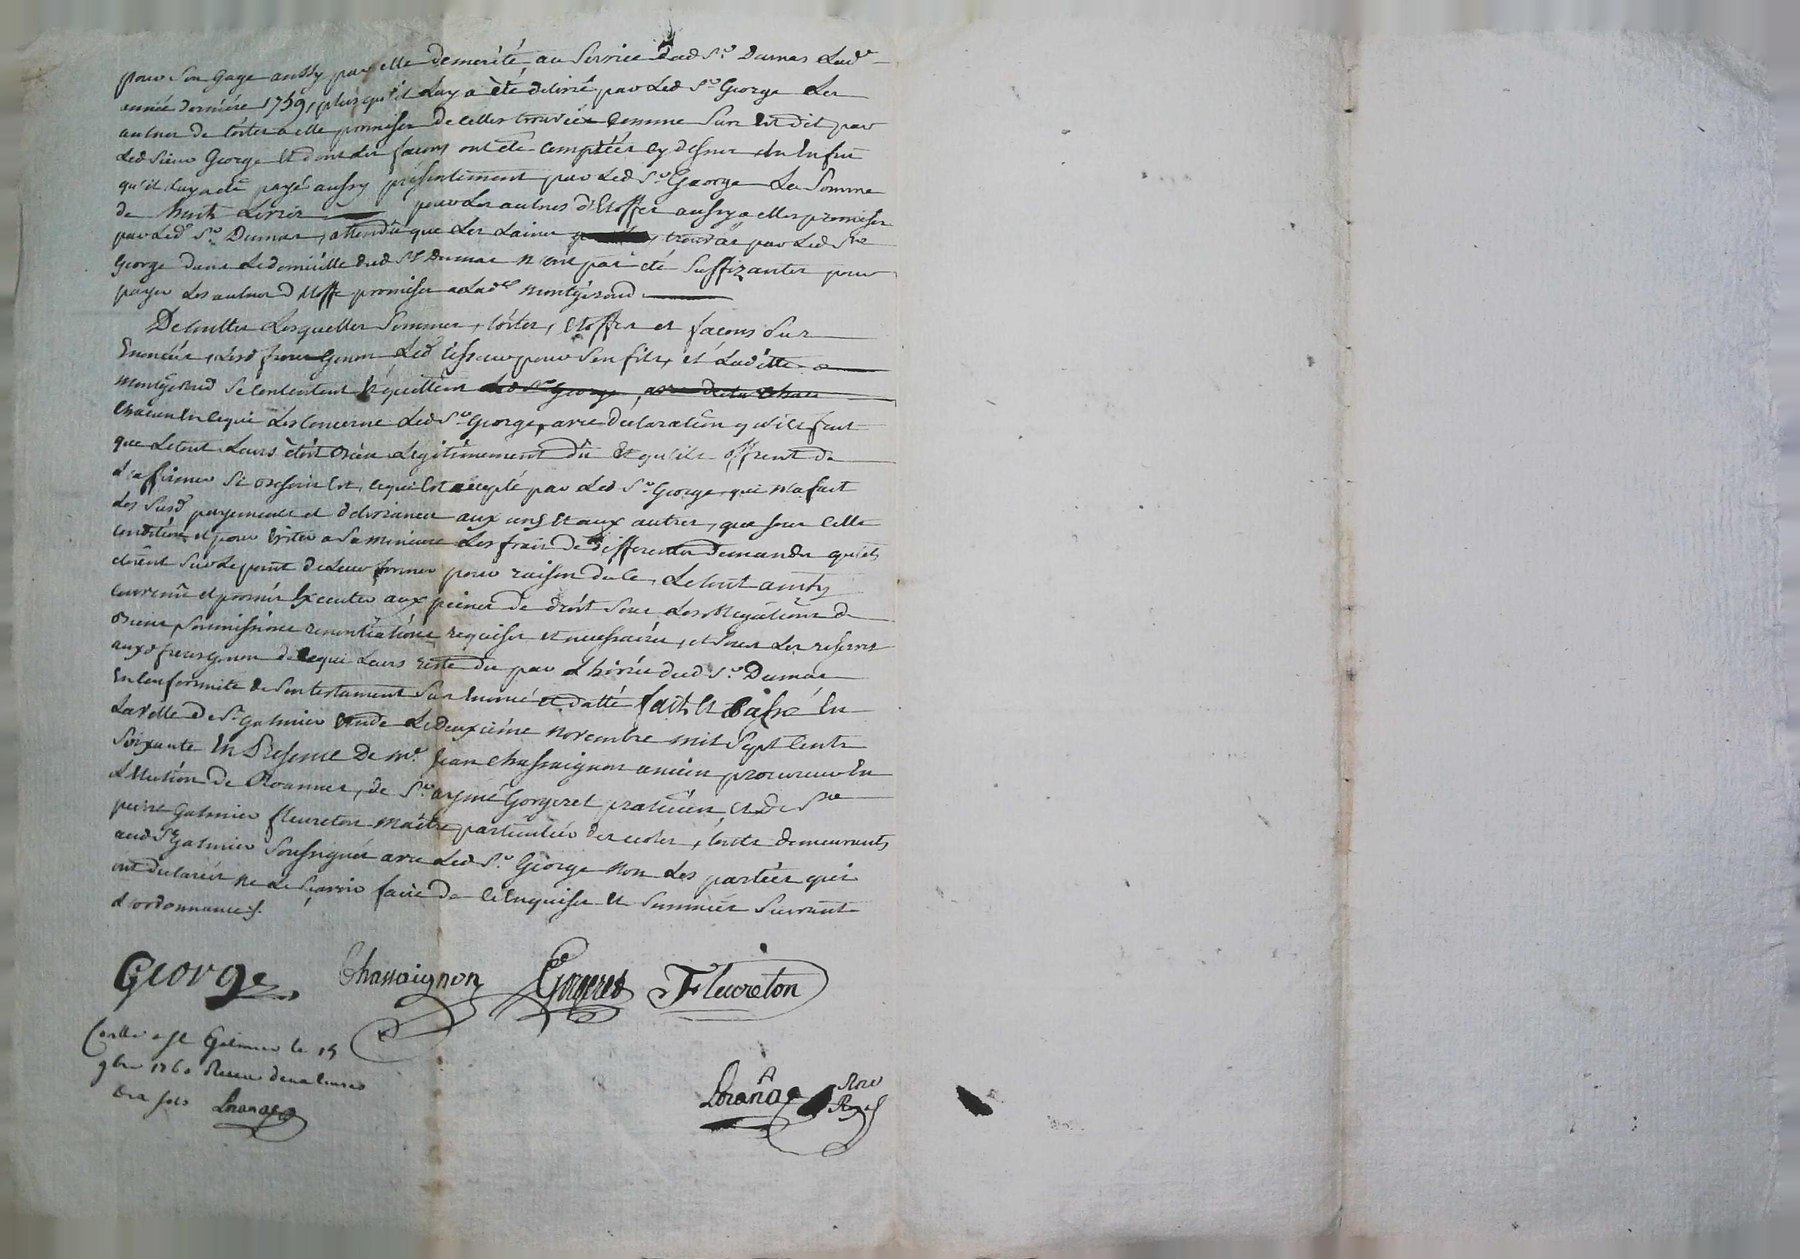 pour son gage aussy par elle demerité au service dud Sr. Dumas lad
année dernière 1759, plus qu'il luy a été delivré par led Sr George les
aulnes de toiles a elle promises de celles trouvéés comme sus est dit par
led sieur George et dont les façons ont été comptéés cy dessus
qu'il luy a été payé aussy présentement par led Sr George la somme
de huit livres pour les aulnes d'Etoffes aussy a elles promises
par led Sr Dumas, attendû que les laines trouvéé par led Sre
George dans le domicille dud Sr Dumas n'ont pas été suffizantes pour
payer les aulnes d'étoffe promises a lad Montgérond
De touttes lesquelles sommes, toiles, Etoffes et façons sus
Enoncéés, lesd freres Genon, led tisseur pour son fils, et laditte
Montgérond se contentent et quittent led Sr George, avec
chacun en ce qui les concerne led Sr George, avec declaration qu'ils font
que le tout leurs étoit bien legitimement dû et qu'ils offrent de
l'affirmer si besoin est, ce qui est accepté par led Sr George, qui n'a fait
les susd payements et delivrances aux uns et aux autres, que sous cette
condition et pour éviter a sa mineure les frais de differentes demandes qu'ils
étoient sur le point de leur former pour raison de ce, Le tout ainsy
convenû et promis Executer aux peines de droit sous les obligations de
biens, soumissions renontiations requises et necessaires, et sous les reserves
auxd freres Genon de ce qui leurs reste du par l'hoirie dud Sr Dumas
En conformité de son testament sus enoncé et datté fait et Passé En
la ville de St Galmier etude le deuxiéme novembre mil sept cents
soixante En Presence De Me. Jean Chassaignon ancien procureur En
L'Election de Roanne, de Sr aymé Gorgeret praticien, et de Sre
pierre Galmier fleureton maitre particulier des ecoles, touts demeurants
aud St Galmier soussignés avec led Sr. George non les parties qui
ont declaréés ne le sçavoir faire de ce Enquises et sommées suivant
l'ordonnance.
George Chassaignon Gorgeret Fleureton
Conllé a St Galmier le 15
9bre 1760 Receu
six sols Lorange
Lorange Nore
Royal